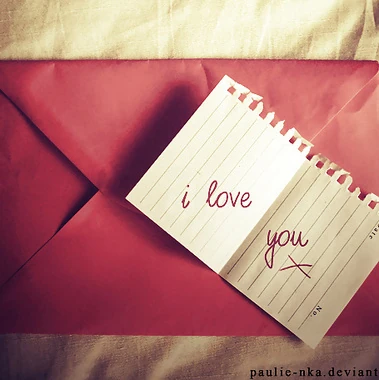 i love
you
x
No.
paulie-nka.deviant